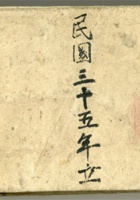 民國三十五年立